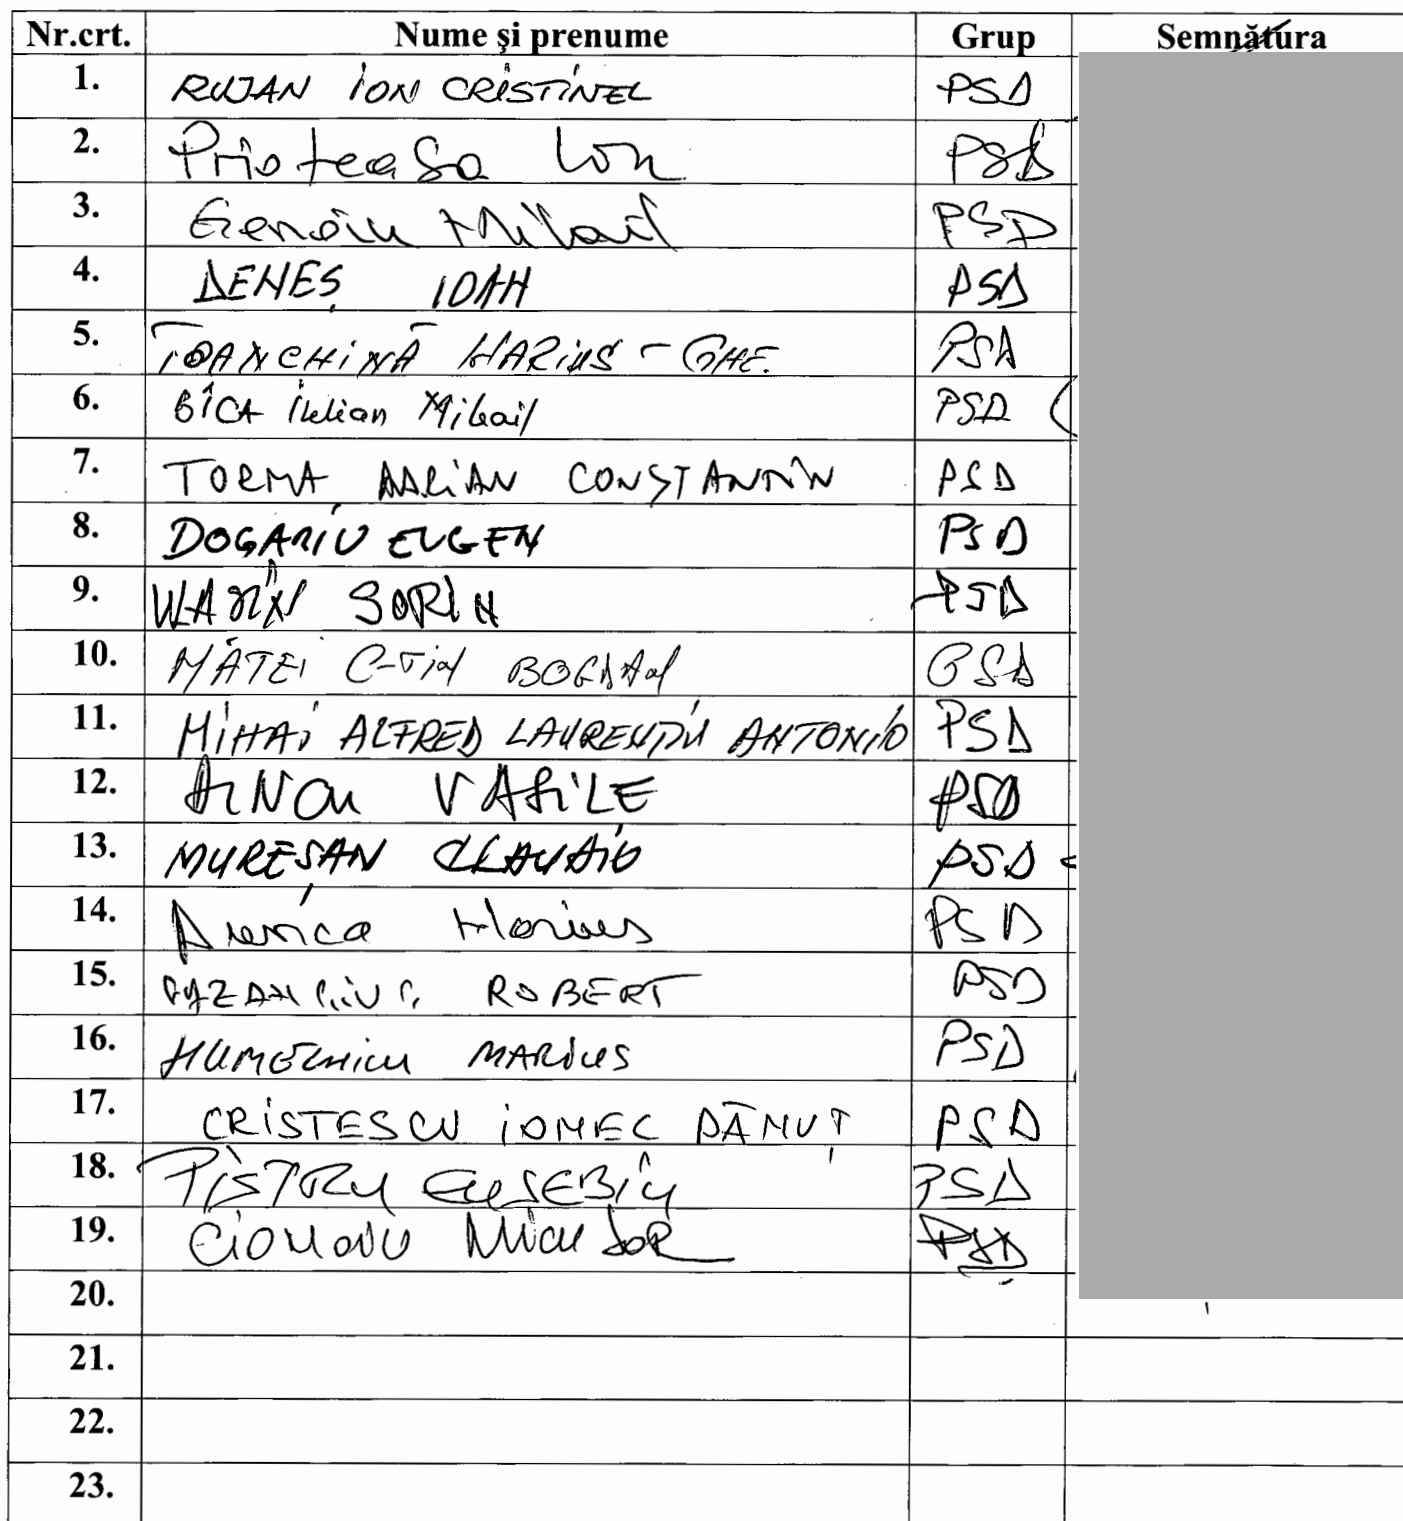 Nr.crt. Nume și prenume Grup Semnătura
1. RUJAN ION CRISTINEL PSD
2. Prioteasa Ion PSD
3. Genoiu Mihail PSD
4. DENEȘ IOAN PSD
5. TOANCHINĂ MARIUS-GHE. PSD
6. BÎCA Iulian Mihail PSD
7. TORMA ADRIAN CONSTANTIN PSD
8. DOGARIU EUGEN PSD
9. SORIN PSD
10. MĂTEI C-TIN BOGDAN PSD
11. MIHAI ALFRED LAURENȚIU ANTONIO PSD
12. VASILE PSD
13. MUREȘAN CLAUDIU PSD
14. Marius PSD
15. ROBERT PSD
16. HUMELNICU MARIUS PSD
17. CRISTESCU IONEL DĂNUȚ PSD
18. PISTRU EUSEBIU PSD
19. PSD
20.
21.
22.
23.